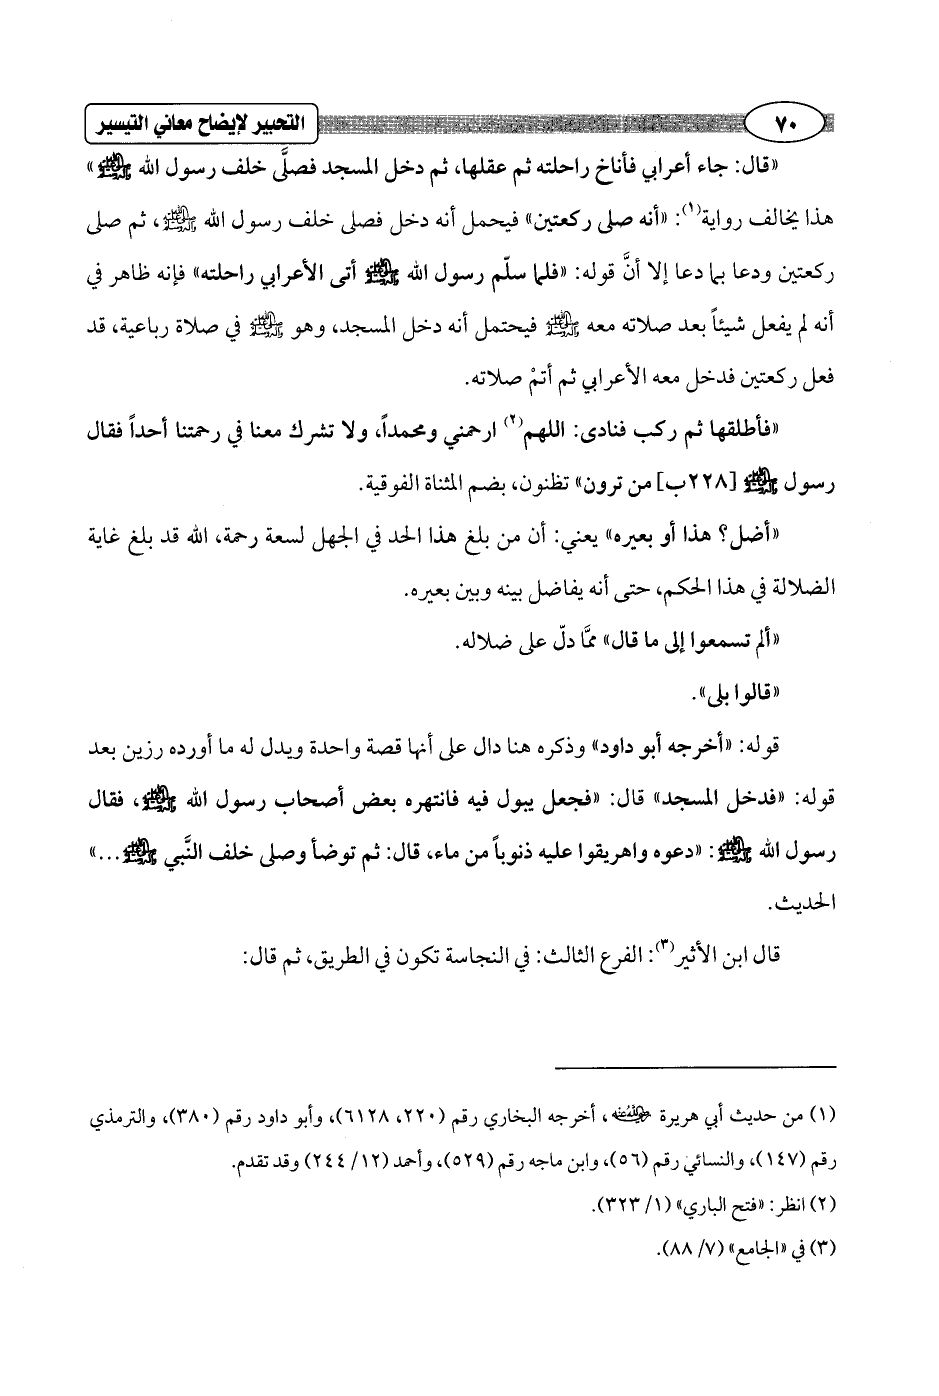 ٧٠
التحبير لإيضاح معاني التيسير
«قال: جاء أعرابي فأناخ راحلته ثم عقلها، ثم دخل المسجد فصلَّى خلف رسول الله ﷺ»
هذا يخالف رواية(١): «أنه صلى ركعتين» فيحمل أنه دخل فصلى خلف رسول الله ﷺ، ثم صلى
ركعتين ودعا بما دعا إلا أنَّ قوله: «فلما سلّم رسول الله ﷺ أتى الأعرابي راحلته» فإنه ظاهر في
أنه لم يفعل شيئاً بعد صلاته معه ﷺ فيحتمل أنه دخل المسجد، وهو ﷺ في صلاة رباعية، قد
فعل ركعتين فدخل معه الأعرابي ثم أتمْ صلاته.
«فأطلقها ثم ركب فنادى: اللهم(٢) ارحمني ومحمداً، ولا تشرك معنا في رحمتنا أحداً فقال
رسول ﷺ [٢٢٨ب] من ترون» تظنون، بضم المثناة الفوقية.
«أضل؟ هذا أو بعيره» يعني: أن من بلغ هذا الحد في الجهل لسعة رحمة، الله قد بلغ غاية
الضلالة في هذا الحكم، حتى أنه يفاضل بينه وبين بعيره.
«ألم تسمعوا إلى ما قال» ممَّا دلّ على ضلاله.
«قالوا بلى».
قوله: «أخرجه أبو داود» وذكره هنا دال على أنها قصة واحدة ويدل له ما أورده رزين بعد
قوله: «فدخل المسجد» قال: «فجعل يبول فيه فانتهره بعض أصحاب رسول الله ﷺ، فقال
رسول الله ﷺ: «دعوه واهريقوا عليه ذنوباً من ماء، قال: ثم توضأ وصلى خلف النَّبي ﷺ...»
الحديث.
قال ابن الأثير(٣): الفرع الثالث: في النجاسة تكون في الطريق، ثم قال:
(١) من حديث أبي هريرة رضي الله عنه، أخرجه البخاري رقم (٢٢٠، ٦١٢٨)، وأبو داود رقم (٣٨٠)، والترمذي
رقم (١٤٧)، والنسائي رقم (٥٦)، وابن ماجه رقم (٥٢٩)، وأحمد (١٢/ ٢٤٤) وقد تقدم.
(٢) انظر: «فتح الباري» (١/ ٣٢٣).
(٣) في «الجامع» (٧/ ٨٨).